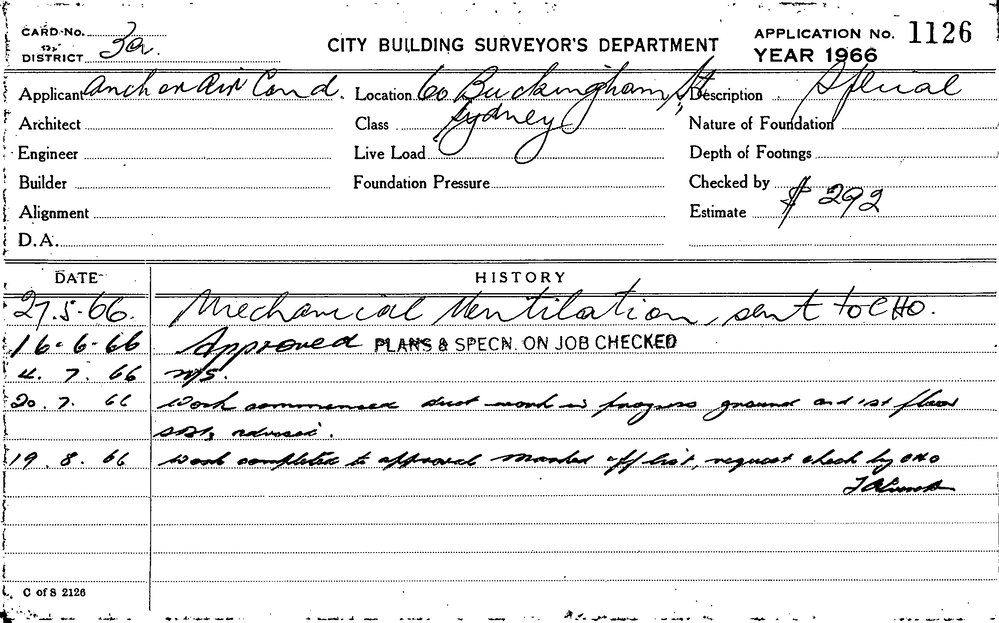 CARD No.
DISTRICT 3a.
CITY BUILDING SURVEYOR'S DEPARTMENT
APPLICATION No. 1126
YEAR 1966
Applicant Anchor Air Cond. Location 60 Buckingham St Description Special
Architect Class Sydney Nature of Foundation
Engineer Live Load Depth of Footings
Builder Foundation Pressure Checked by
Alignment Estimate $ 292
D.A.
DATE HISTORY
27.5.66. Mechanical Ventilation, sent to CHO.
16.6.66 Approved PLANS & SPECN. ON JOB CHECKED
4.7.66 N/S.
20.7.66 Work commenced duct work in progress ground and 1st floor
advised.
19.8.66 Work completed to approval marked off list, request check by CHO
C of S 2126